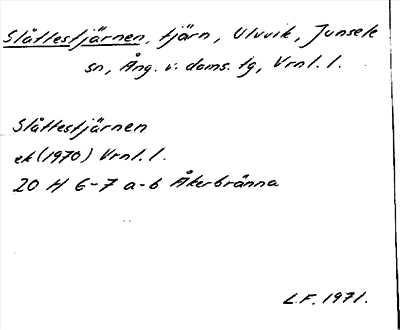 Slåttestjärnen, tjärn, Uluvik, Junsele
sn, Ång. v. doms. tg, Vrnl. l.
Slåttestjärnen
ek (1970) Vrnl. l.
20 H 6-7 a-b Åkerbränna
L.F. 1971.